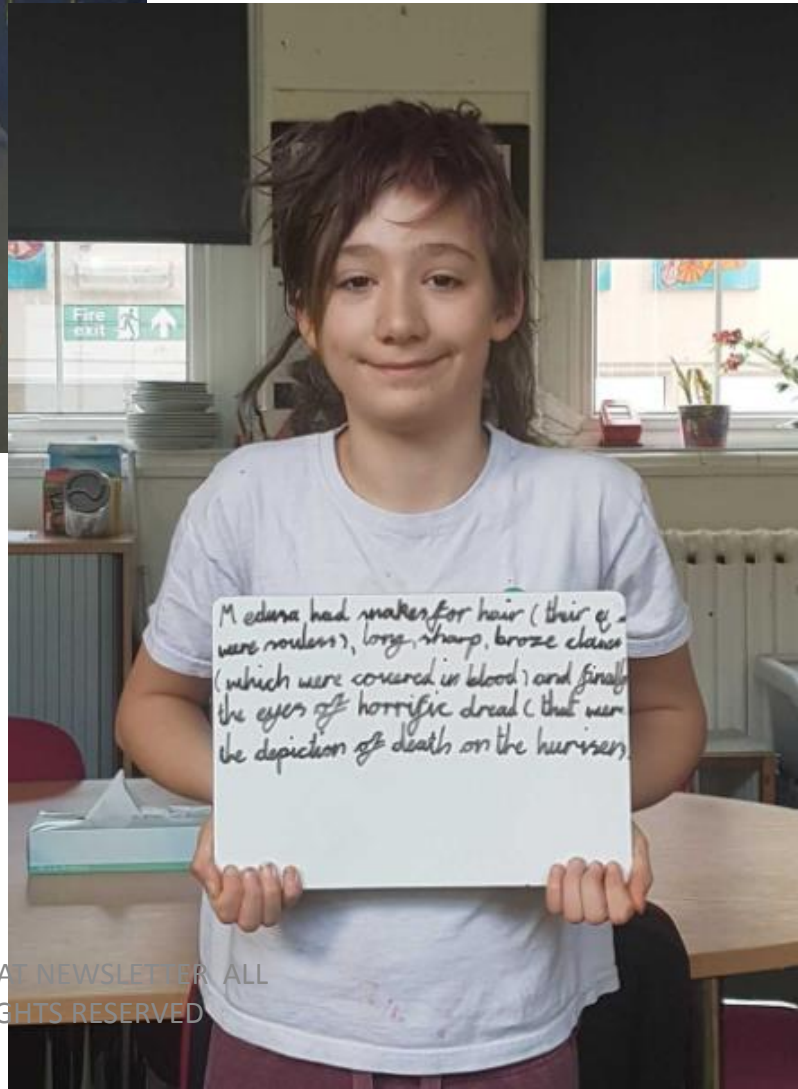 Fire
exit
Medusa had snakes for hair (their e
were souless), long, sharp, broze claws
(which were covured in blood) and finally
the eyes of horrific dread (that were
the depiction of death on the hurisen)
AT NEWSLETTER ALL
GHTS RESERVED